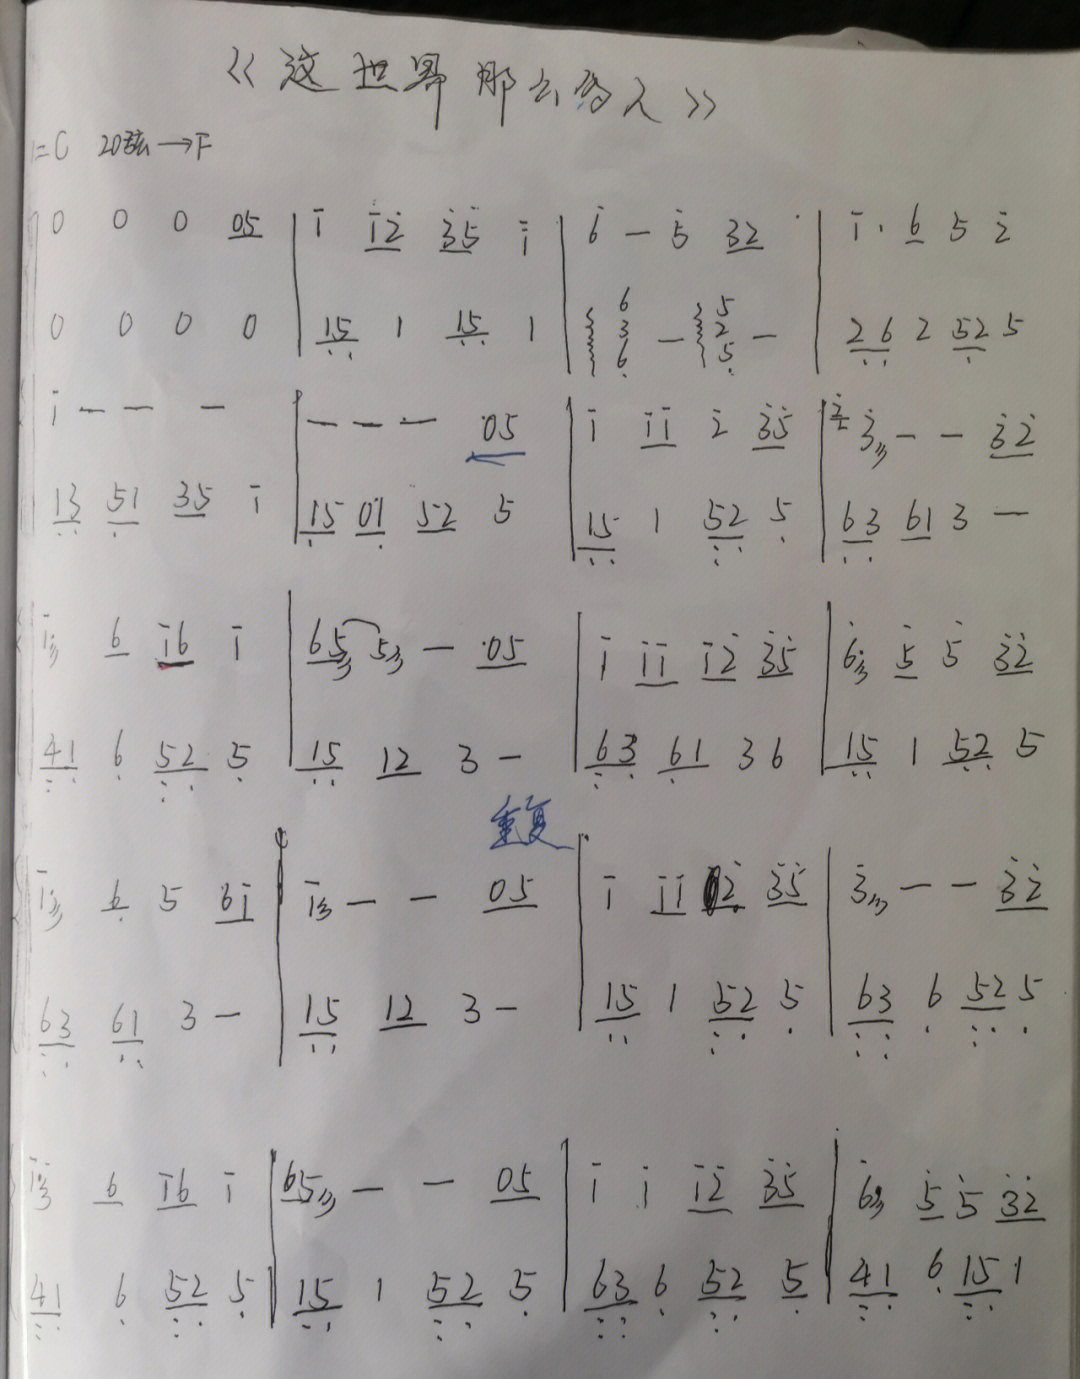 《这世界那么多人》
=C 20弦→F
0 0 0 05 | i i2̇ 3̇5̇ i | 6̇ — 5̇ 32 | i· 6 5 2̇
0 0 0 0 | 15 1 15 1 | 6 3 6 — 5 2 5 — | 26 2 52 5
i — — — | — — — 05 | i ii 2̇ 3̇5̇ | 2̇ 3̇ — — 3̇2̇
13 51 35 i | 15 01 52 5 | 15 1 52 5 | 63 61 3 —
i 6 i6 i | 65 5 — 05 | i ii i2̇ 3̇5̇ | 6̇ 5̇ 5̇ 3̇2̇
41 6 52 5 | 15 12 3 — | 63 61 3 6 | 15 1 52 5
重复
i 6 5 6i | i — — 05 | i ii 2̇ 3̇5̇ | 3̇ — — 3̇2̇
63 61 3 — | 15 12 3 — | 15 1 52 5 | 63 6 52 5
i 6 i6 i | 65 — — 05 | i i i2̇ 3̇5̇ | 6̇ 5̇ 5̇ 3̇2̇
41 6 52 5 | 15 1 52 5 | 63 6 52 5 | 41 6 15 1